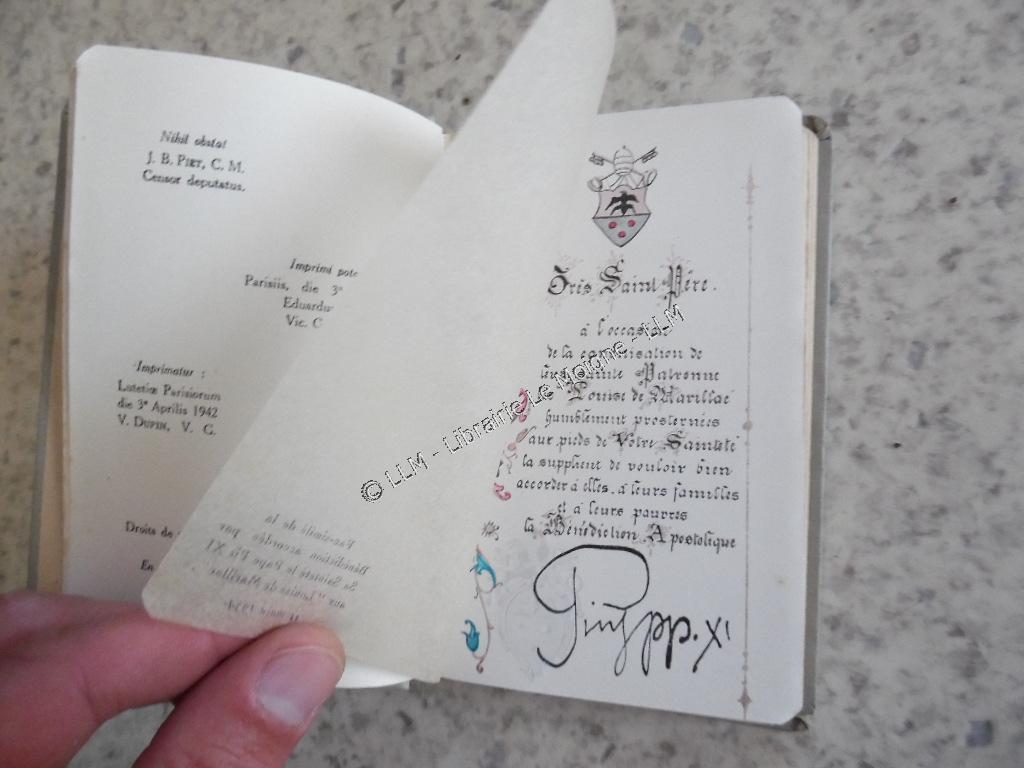 Nihil obstat
J. B. PIET, C. M.
Censor deputatus.
Imprimi pote
Parisiis, die 3ª
Eduardu
Vic. C
Imprimatur :
Lutetiæ Parisiorum
die 3ª Aprilis 1942
V. DUPIN, V. G.
Droits de
En
Facsimilé de la
Bénédiction accordée par
Sa Sainteté le Pape Pie XI
aux "Louise de Marillac
11 mars 1934
Très Saint Père.
à l'occasion
de la canonisation de
leur Sainte Patronne
Louise de Marillac
humblement prosternées
aux pieds de Votre Sainteté
la supplient de vouloir bien
accorder à elles, à leurs familles
et à leurs pauvres
la Bénédiction Apostolique
Pius pp. XI
© LLM - Librairie Le Moigne - LLM